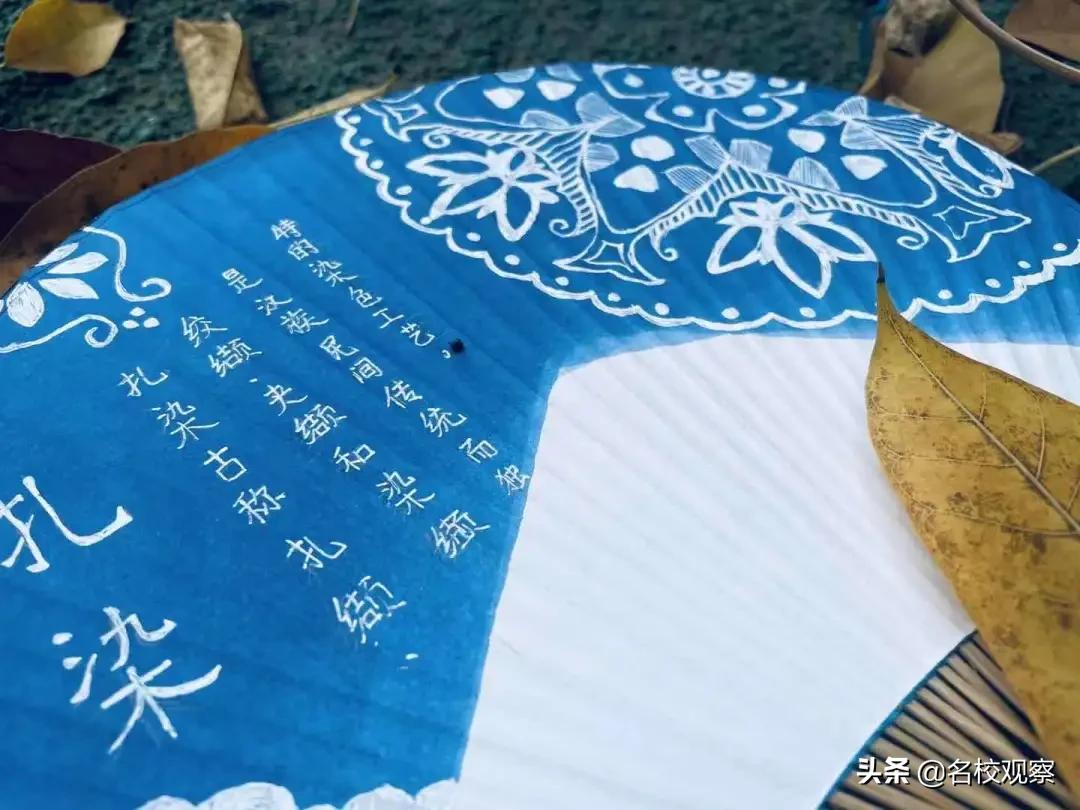 扎染
扎染古称扎缬、
绞缬、夹缬和染缬
是汉族民间传统而独
特的染色工艺。
头条 @名校观察